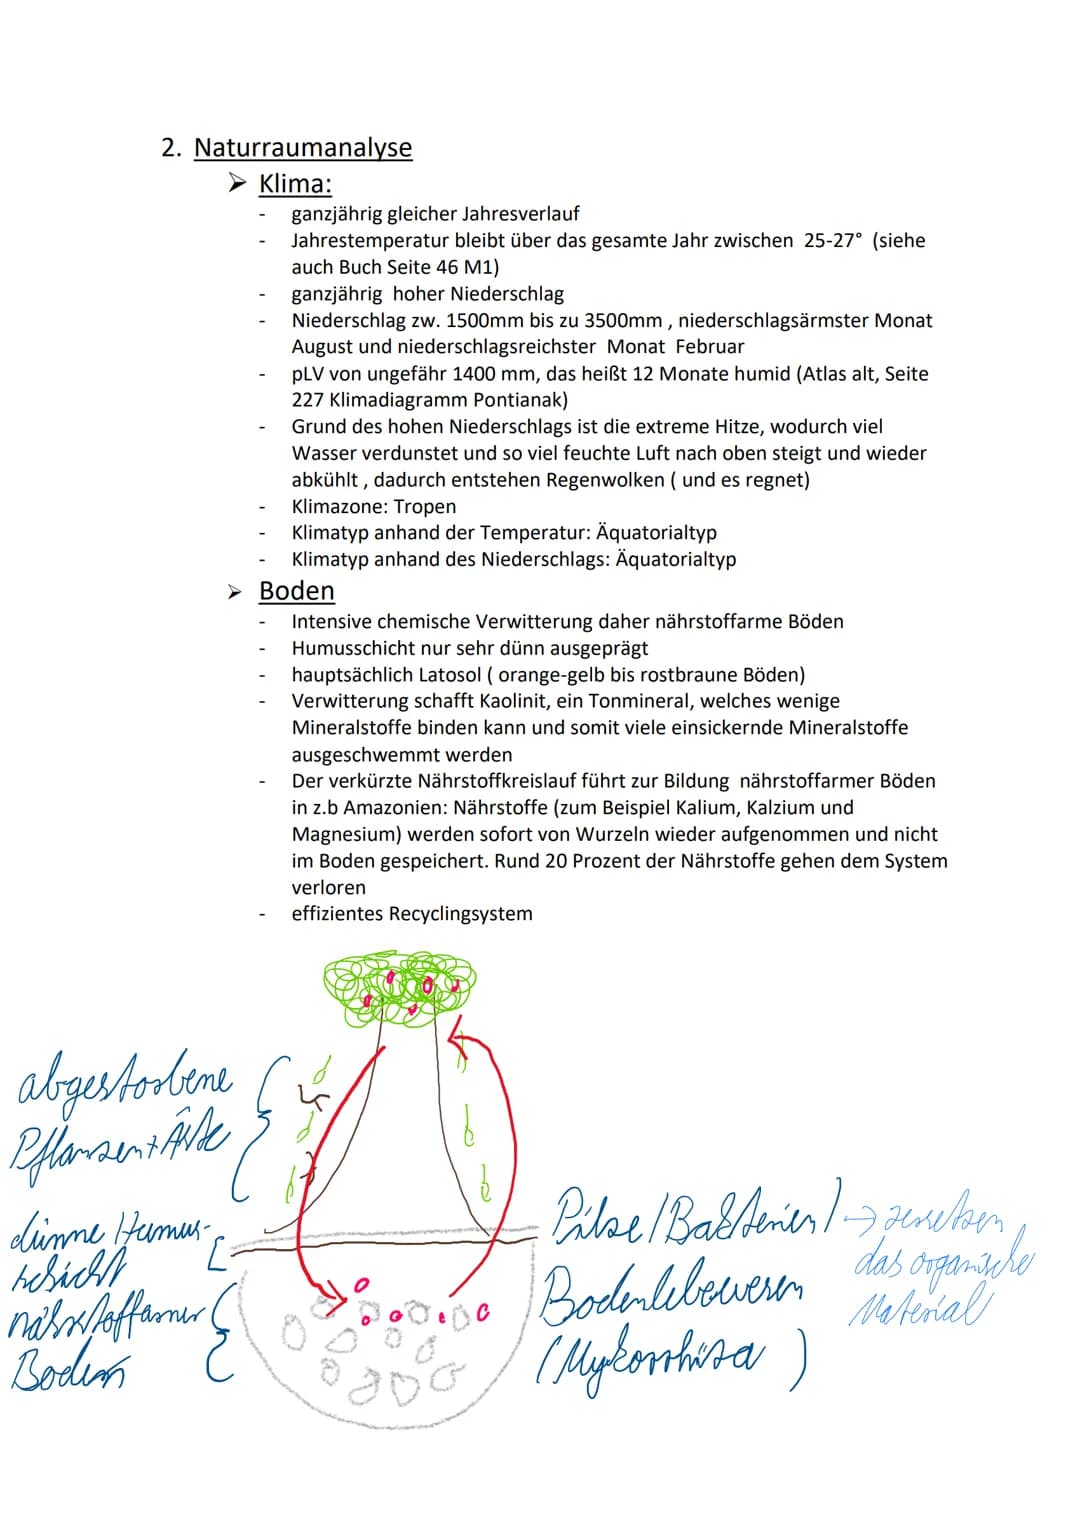 2. Naturraumanalyse
➢ Klima:
- ganzjährig gleicher Jahresverlauf
- Jahrestemperatur bleibt über das gesamte Jahr zwischen 25-27° (siehe
auch Buch Seite 46 M1)
- ganzjährig hoher Niederschlag
- Niederschlag zw. 1500mm bis zu 3500mm , niederschlagsärmster Monat
August und niederschlagsreichster Monat Februar
- pLV von ungefähr 1400 mm, das heißt 12 Monate humid (Atlas alt, Seite
227 Klimadiagramm Pontianak)
- Grund des hohen Niederschlags ist die extreme Hitze, wodurch viel
Wasser verdunstet und so viel feuchte Luft nach oben steigt und wieder
abkühlt , dadurch entstehen Regenwolken ( und es regnet)
- Klimazone: Tropen
- Klimatyp anhand der Temperatur: Äquatorialtyp
- Klimatyp anhand des Niederschlags: Äquatorialtyp
➢ Boden
- Intensive chemische Verwitterung daher nährstoffarme Böden
- Humusschicht nur sehr dünn ausgeprägt
- hauptsächlich Latosol ( orange-gelb bis rostbraune Böden)
- Verwitterung schafft Kaolinit, ein Tonmineral, welches wenige
Mineralstoffe binden kann und somit viele einsickernde Mineralstoffe
ausgeschwemmt werden
- Der verkürzte Nährstoffkreislauf führt zur Bildung nährstoffarmer Böden
in z.b Amazonien: Nährstoffe (zum Beispiel Kalium, Kalzium und
Magnesium) werden sofort von Wurzeln wieder aufgenommen und nicht
im Boden gespeichert. Rund 20 Prozent der Nährstoffe gehen dem System
verloren
- effizientes Recyclingsystem
abgestorbene
Pflanzen + Äste
dünne Humus-
schicht
nährstoffarmer
Boden
Pilze/Bakterien/
Bodenlebewesen
(Mykorrhiza)
→ zersetzen
das organische
Material